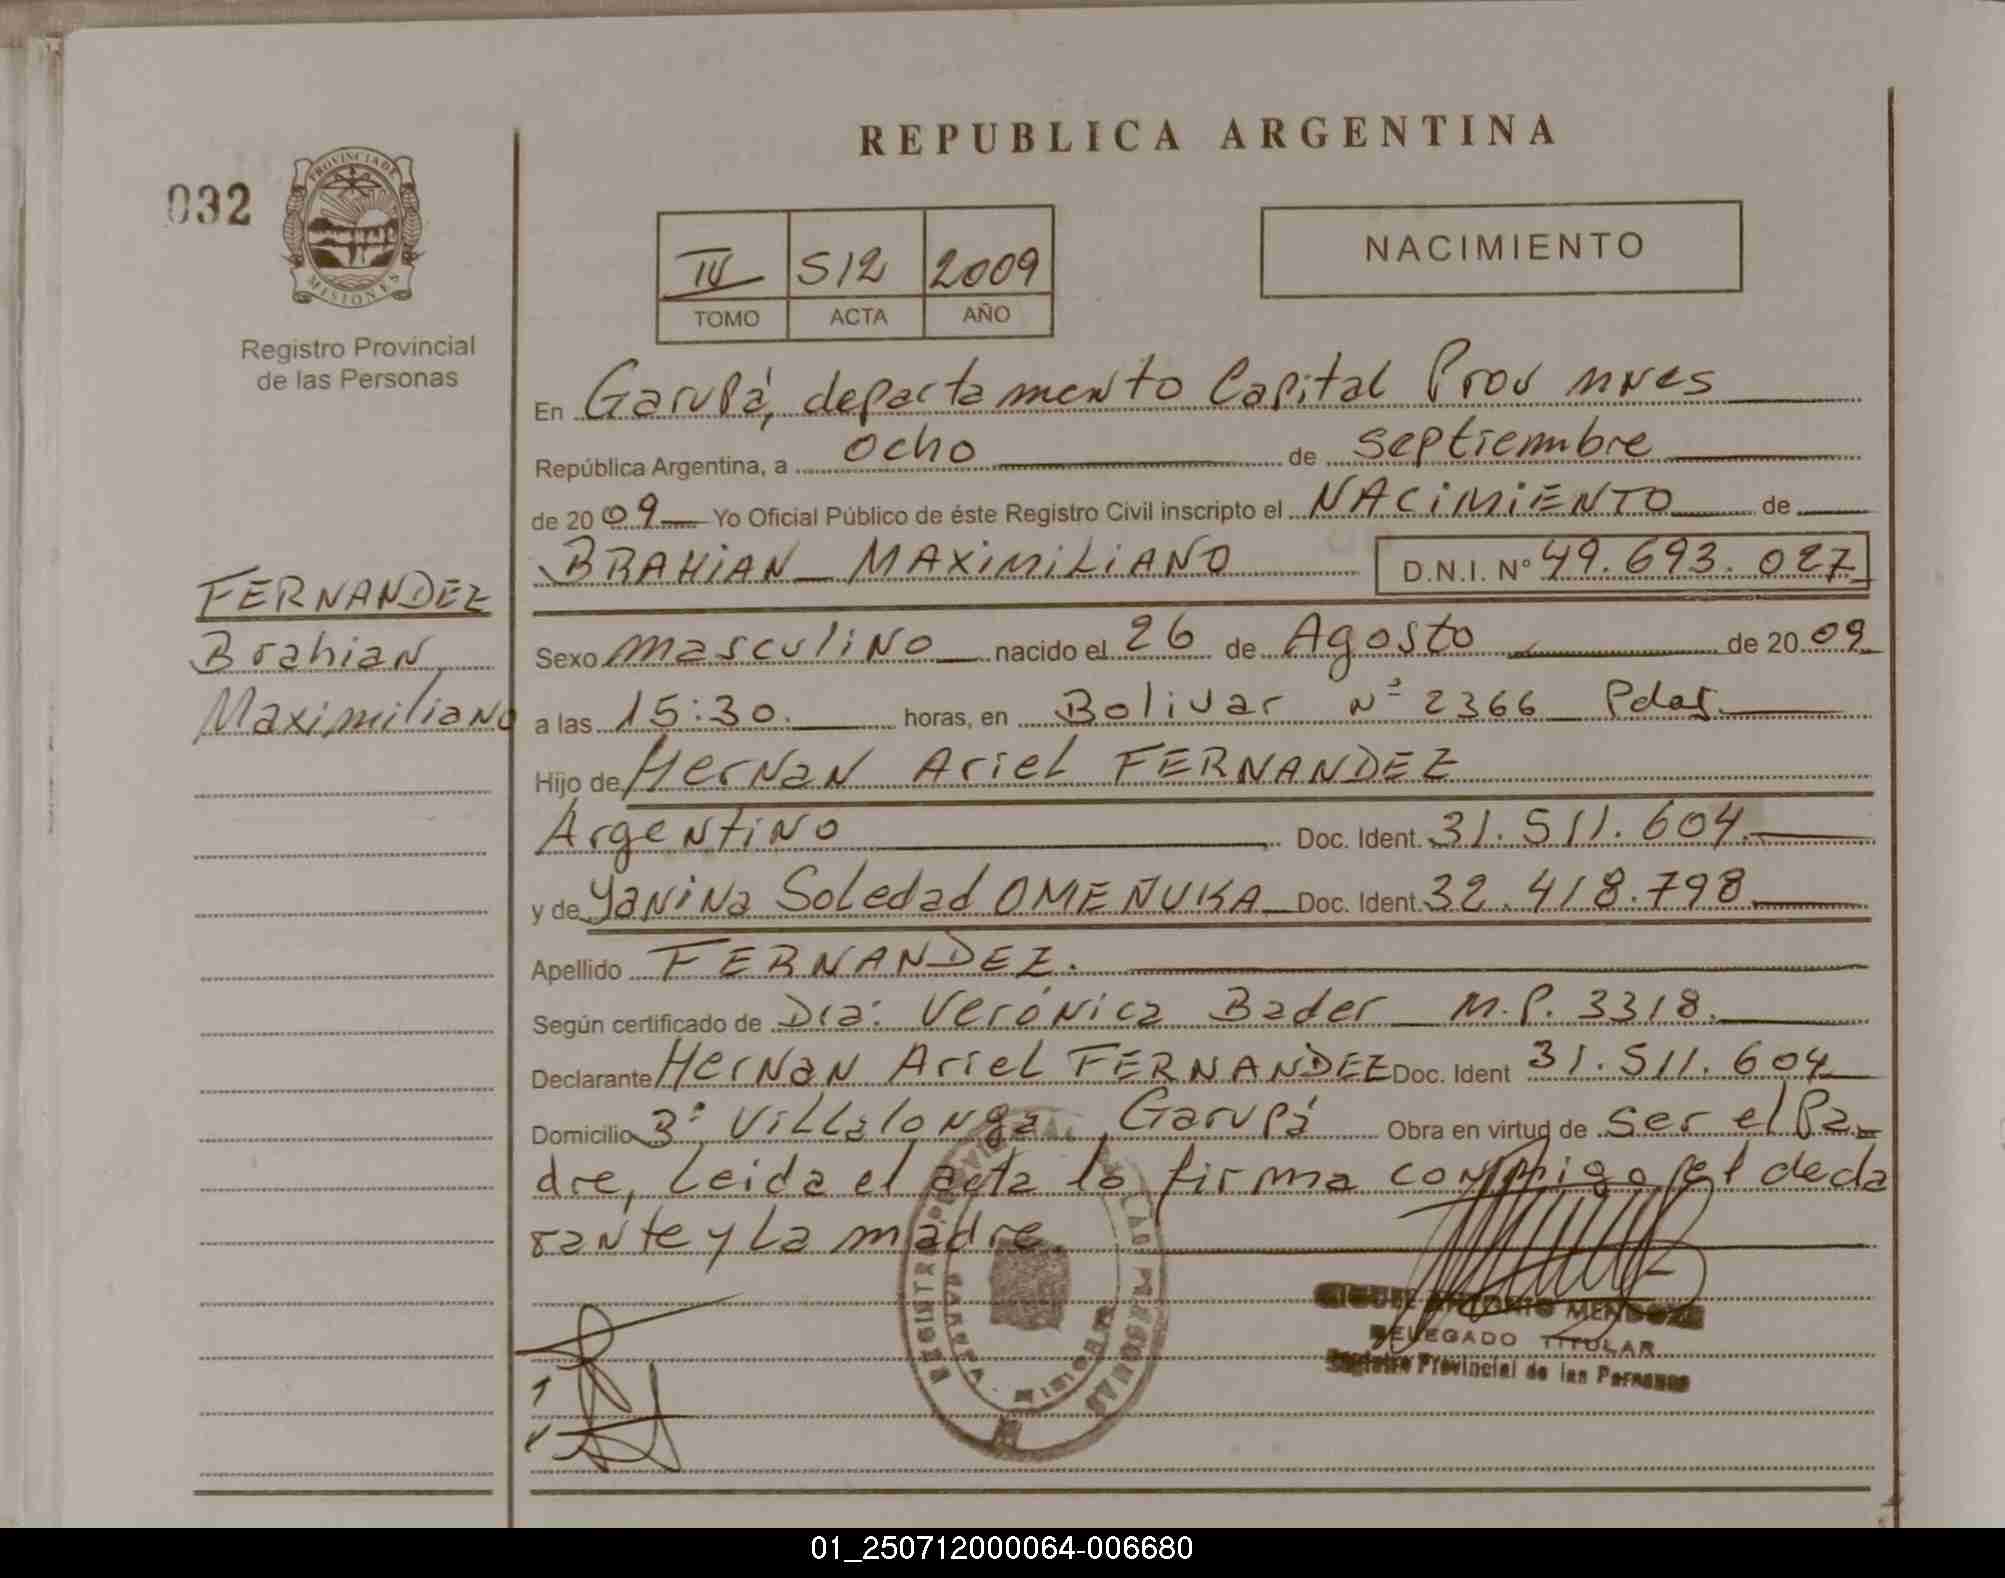 REPUBLICA ARGENTINA
032
PROVINCIA DE
MISIONES
Registro Provincial
de las Personas
IV 512 2009
TOMO ACTA AÑO
NACIMIENTO
En Garupá, departamento Capital Prov mnes
República Argentina, a ocho de septiembre
de 2009 Yo Oficial Público de éste Registro Civil inscripto el NACIMIENTO de
BRAHIAN MAXIMILIANO D.N.I. Nº 49.693.027
FERNANDEZ
Brahian
Maximiliano
Sexo masculino nacido el 26 de Agosto de 2009
a las 15:30. horas, en Bolivar Nº 2366 Pdas.
Hijo de Hernan Ariel FERNANDEZ
Argentino Doc. Ident. 31.511.604.
y de Yanina Soledad OMEÑUKA Doc. Ident. 32.418.798
Apellido FERNANDEZ.
Según certificado de Dra: Verónica Bader M.P. 3318.
Declarante Hernan Ariel FERNANDEZ Doc. Ident 31.511.604
Domicilio Bº Villalonga, Garupá Obra en virtud de ser el Pa-
dre, Leida el acta lo firma conmigo el decla
rante y La madre.
MIGUEL ANTONIO MENDOZA
DELEGADO TITULAR
Registro Provincial de las Personas
01_250712000064-006680